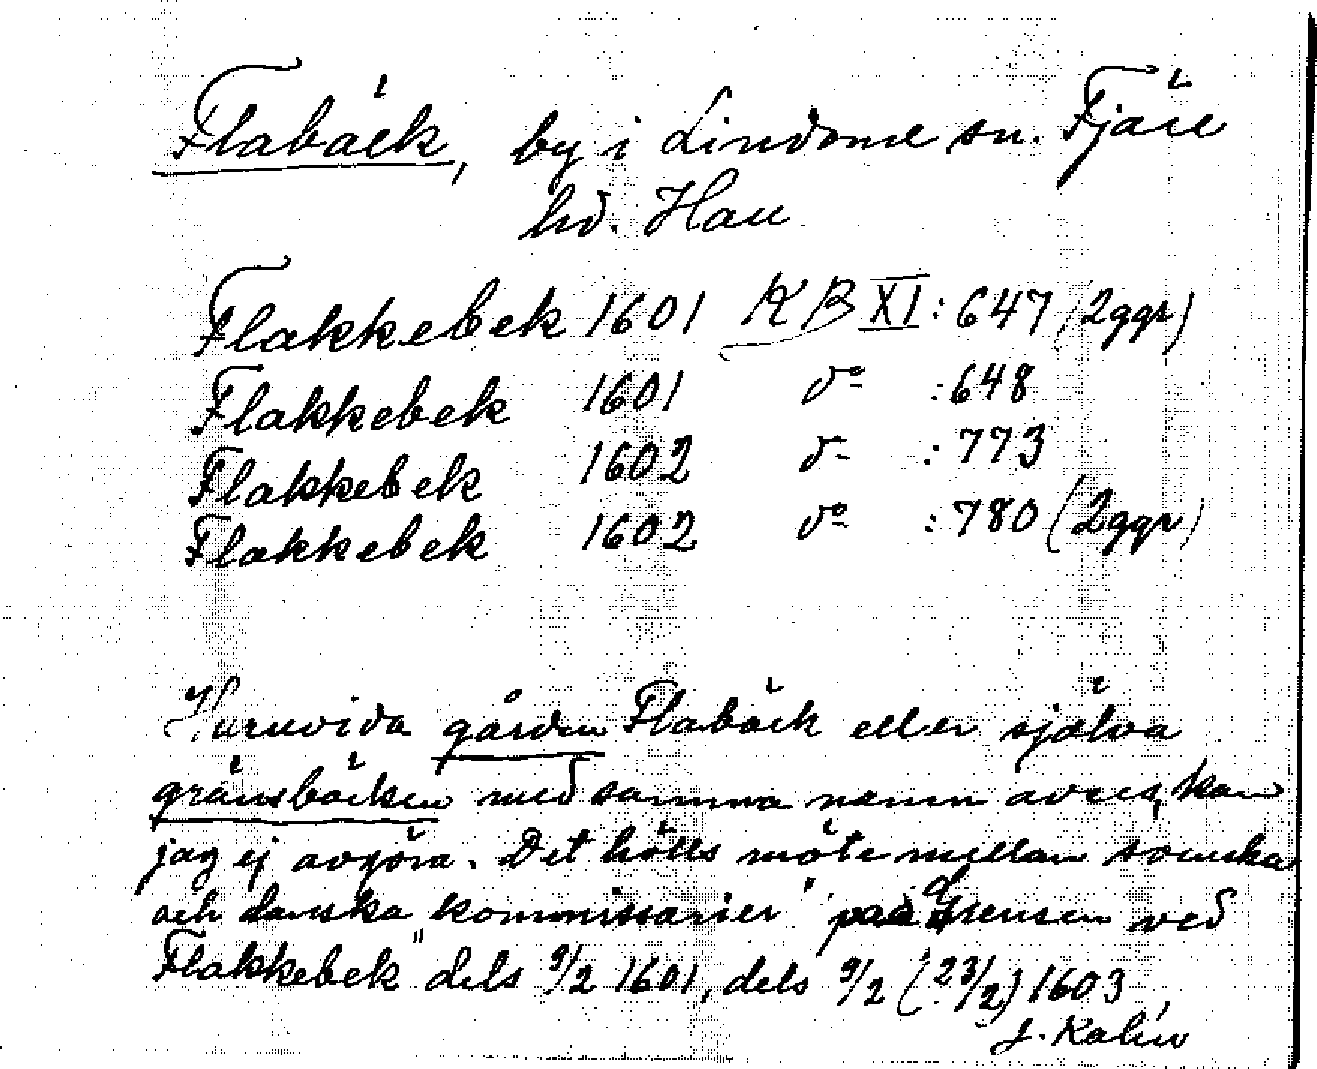 Flabäck, by i Lindome sn. Fjäre
hd. Hall
Flakkebek 1601 KB XI : 647 (2ggr)
Flakkebek 1601 do : 648
Flakkebek 1602 d- : 773
Flakkebek 1602 do : 780 (2ggr)
Huruvida gården Flabäck eller själva
gränsbäcken med samma namn avses, kan
jag ej avgöra. Det hölls möte mellan svenska
och danska kommissarier "paa Grensen ved
Flakkebek" dels 9/2 1601, dels 9/2 (23/2) 1603
J. Kalén